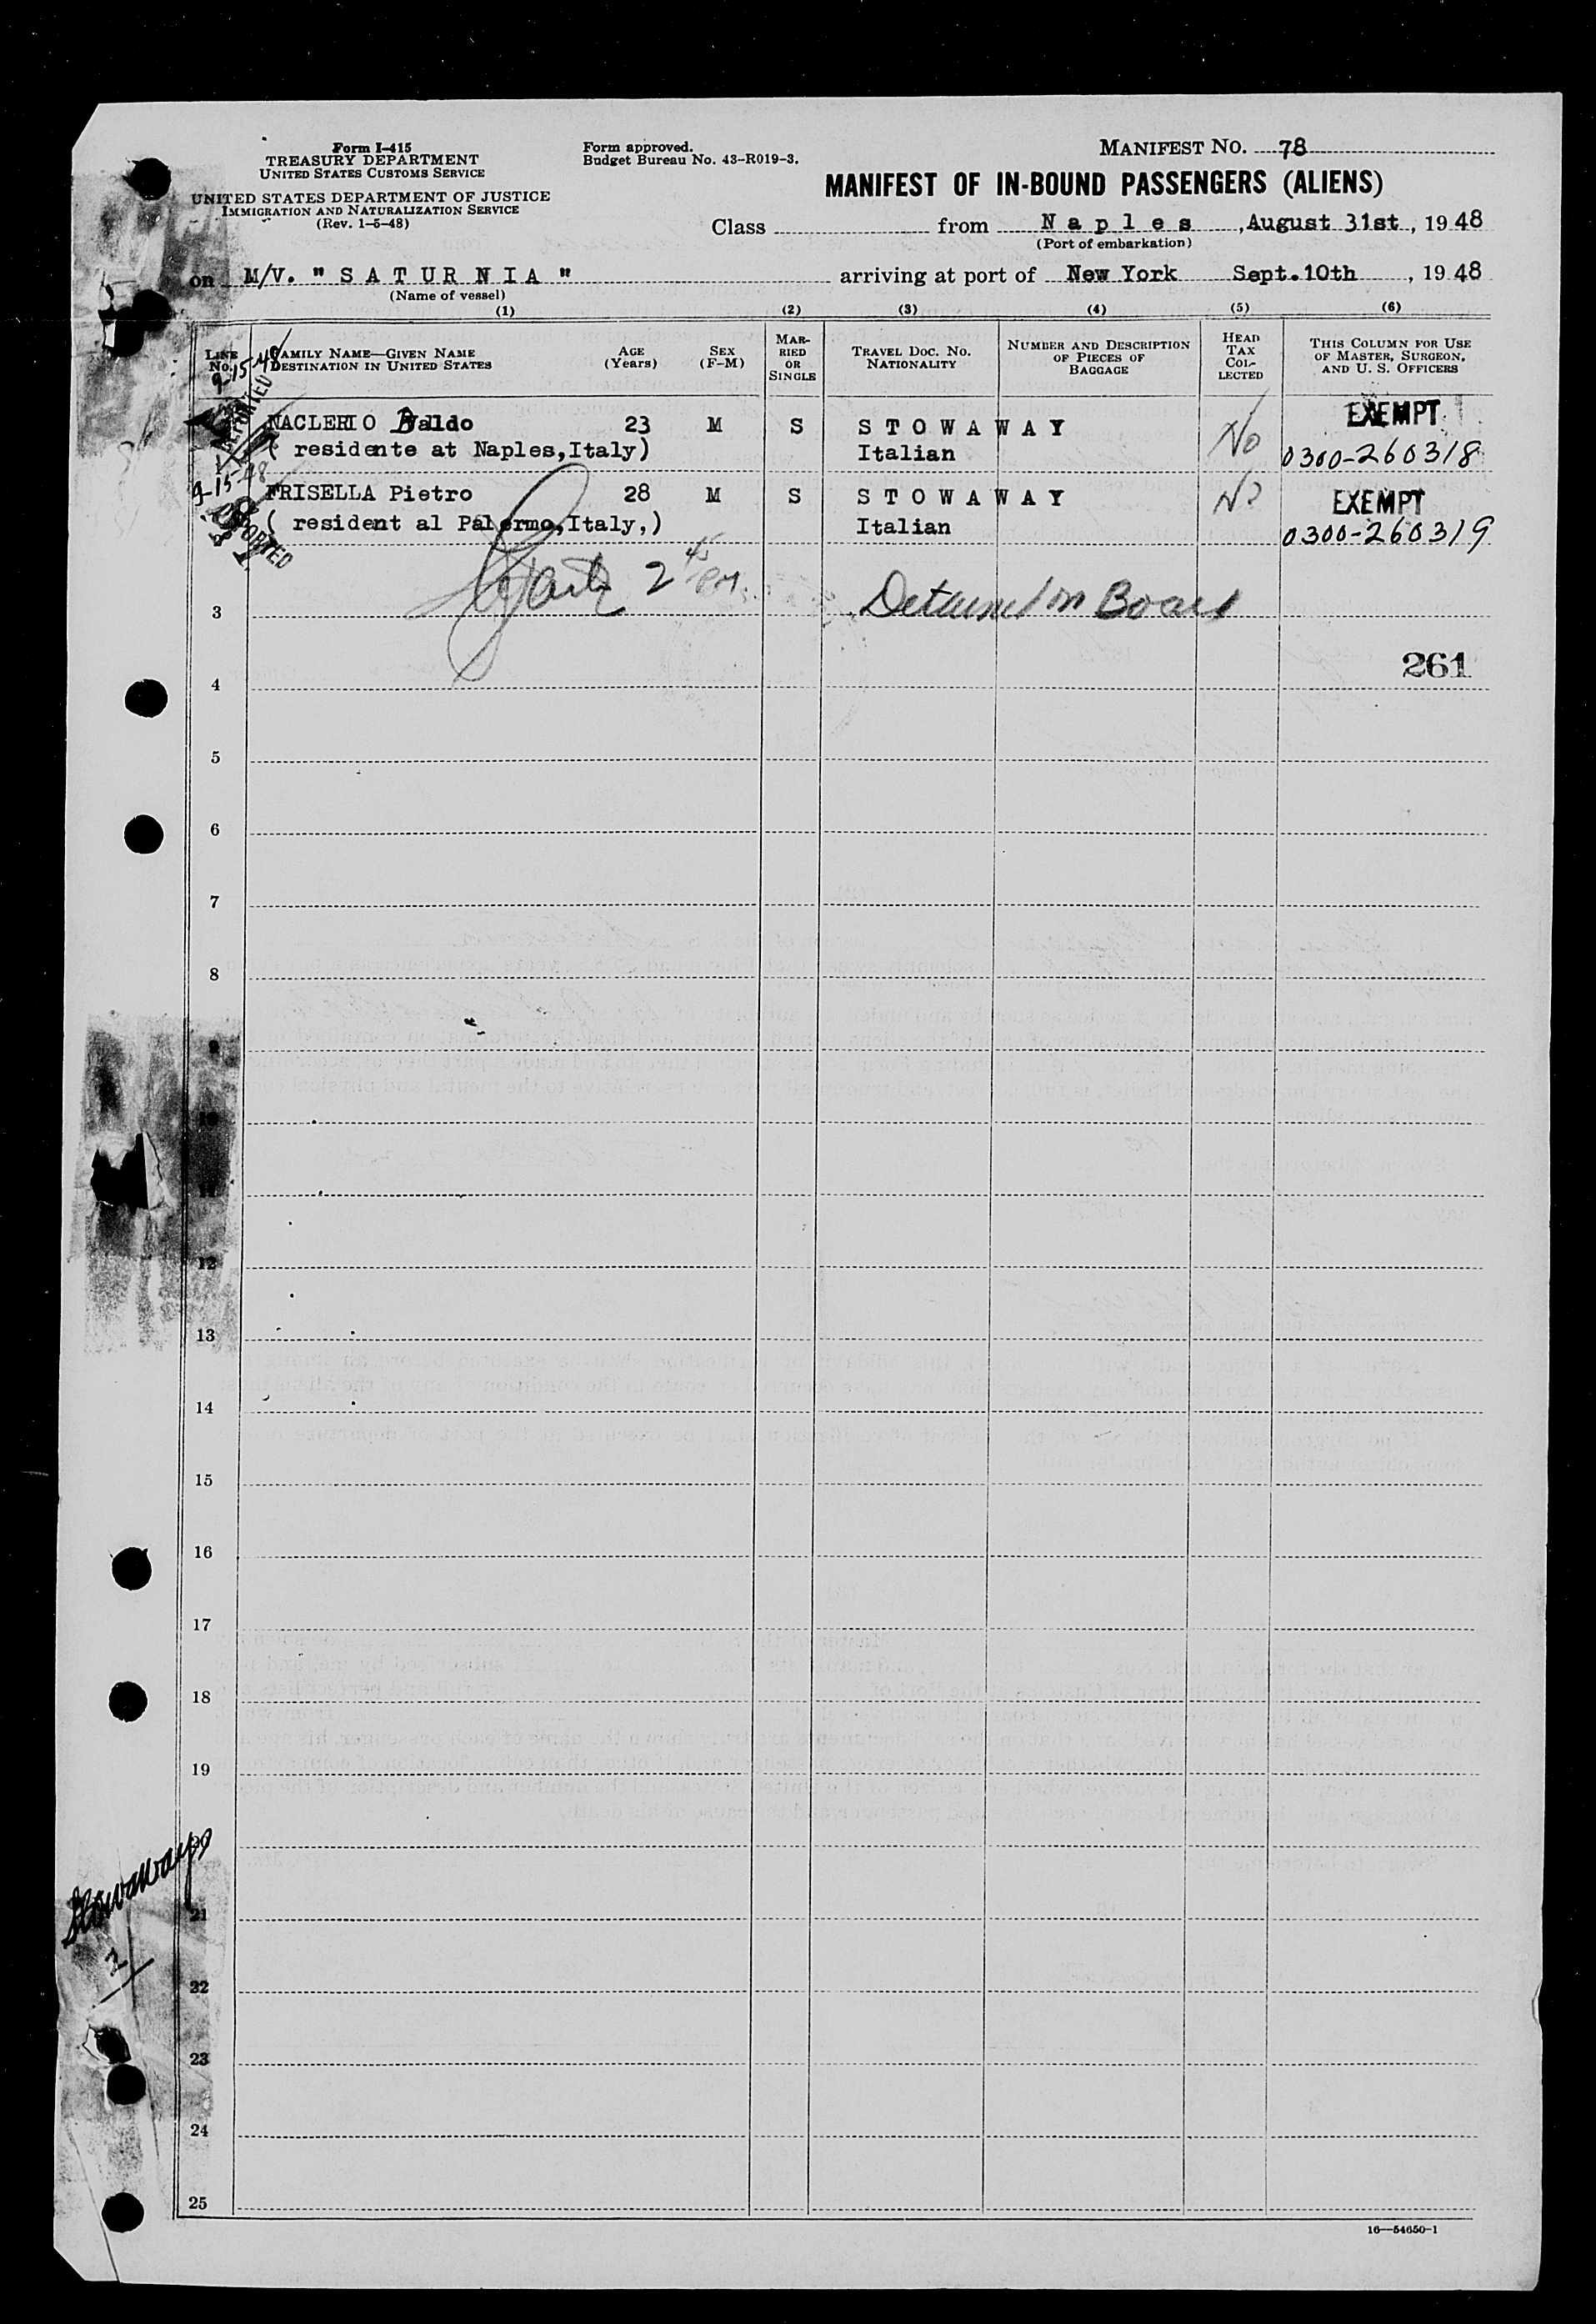 Form I-415
TREASURY DEPARTMENT
UNITED STATES CUSTOMS SERVICE
UNITED STATES DEPARTMENT OF JUSTICE
IMMIGRATION AND NATURALIZATION SERVICE
(Rev. 1-5-48)
Form approved.
Budget Bureau No. 43-R019-3.
MANIFEST NO. 78
MANIFEST OF IN-BOUND PASSENGERS (ALIENS)
Class from Naples, August 31st, 1948
(Port of embarkation)
on M/V. "SATURNIA" arriving at port of New York Sept.10th, 1948
(Name of vessel)
(1) (2) (3) (4) (5) (6)
LINE NO. FAMILY NAME—GIVEN NAME DESTINATION IN UNITED STATES AGE (Years) SEX (F-M) MARRIED OR SINGLE TRAVEL DOC. NO. NATIONALITY NUMBER AND DESCRIPTION OF PIECES OF BAGGAGE HEAD TAX COLLECTED THIS COLUMN FOR USE OF MASTER, SURGEON, AND U. S. OFFICERS
9-15-48
DEPORTED
NACLERIO Baldo 23 M S STOWAWAY No EXEMPT
( residente at Naples,Italy) Italian 0300-260318
9-15-48
DEPORTED
FRISELLA Pietro 28 M S STOWAWAY No EXEMPT
( resident al Palermo,Italy,) Italian 0300-260319
2 45 PM. Detained on Board
3
261
4
5
6
7
8
9
10
11
12
13
14
15
16
17
18
19
20
Stowaways
2
21
22
23
24
25
16—54650-1